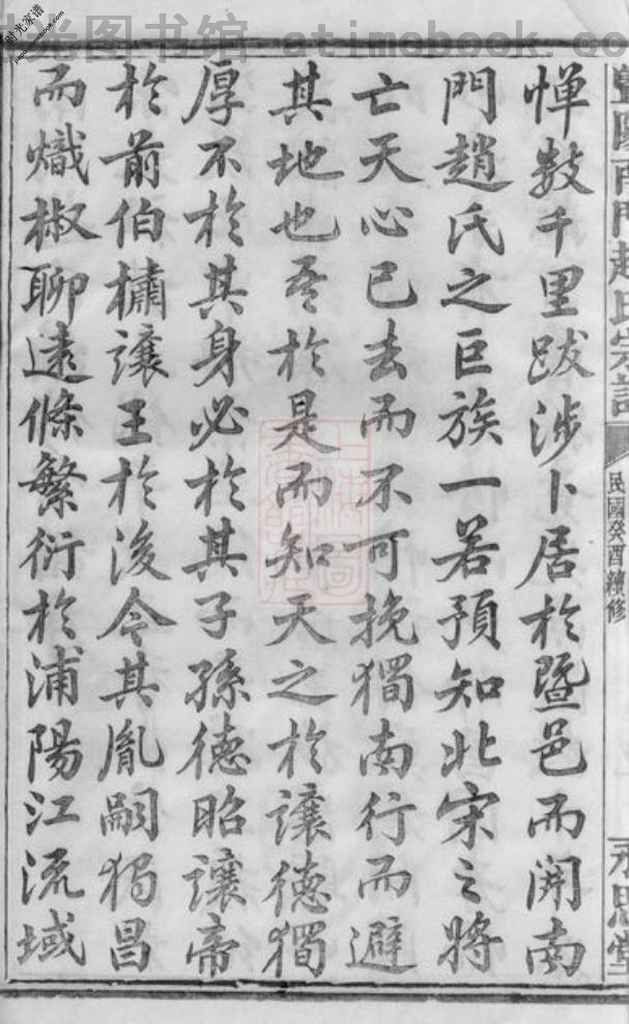 暨陽南門趙氏宗譜
民國癸酉續修
永思堂
憚數千里跋涉卜居於暨邑而開南
門趙氏之巨族一若預知北宋之將
亡天心已去而不可挽獨南行而避
其地也吾於是而知天之於讓德獨
厚不於其身必於其子孫德昭讓帝
於前伯橚讓王於後令其胤嗣獨昌
而熾椒聊遠條繁衍於浦陽江流域
时光家谱
图书馆